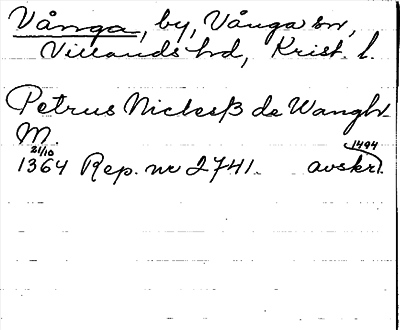 Vånga, by, Vånga sn,
Villands hd, Krist. l.
Petrus Nickesß de Wangh
M.
21/10 1494
1364 Rep. nr 2741. avskr.